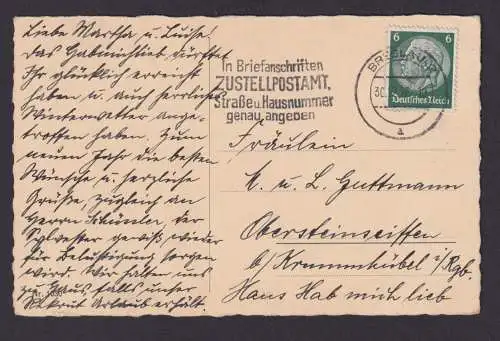 Liebe Martha u. Luise!
Das Gabmichlieb, dürftet
Ihr glücklich erreicht
haben u. auch herrliches
Winterwetter ange-
troffen haben. Zum
neuen Jahr die besten
Wünsche u. herzliche
Grüße, zugleich an
Herrn Schüssler, der
Sylvester gewiß wieder
für Belustigung sorgen
wird. Wir halten uns
zu Haus, falls unser
Rekrut Urlaub erhält.
In Briefanschriften
ZUSTELLPOSTAMT,
Straße u. Hausnummer
genau angeben
BRESLAU
30.
a
6 6
Deutsches Reich
Fräulein
M. u. L. Guttmann
Obersteinseiffen
b/ Krummhübel i/Rgb.
Haus Hab mich lieb